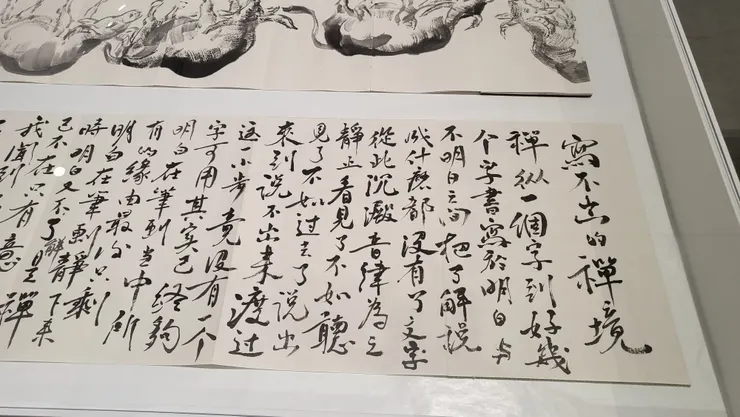 寫不出的禪境
禪縱一個字到好幾
个字書寫於明白与
不明白之间把了解說
成什麼都沒有了文字
從此沉澱音律為之
靜止看見了不如聽
見了不如过去了說出
來到說不出来渡过
這一小步竟沒有一个
字可用其实已经夠
明白在筆劃当中所
有的緣由最只
明白在筆劃靜剩
時明白又不了解靜下来
已不在只有是
我意禪